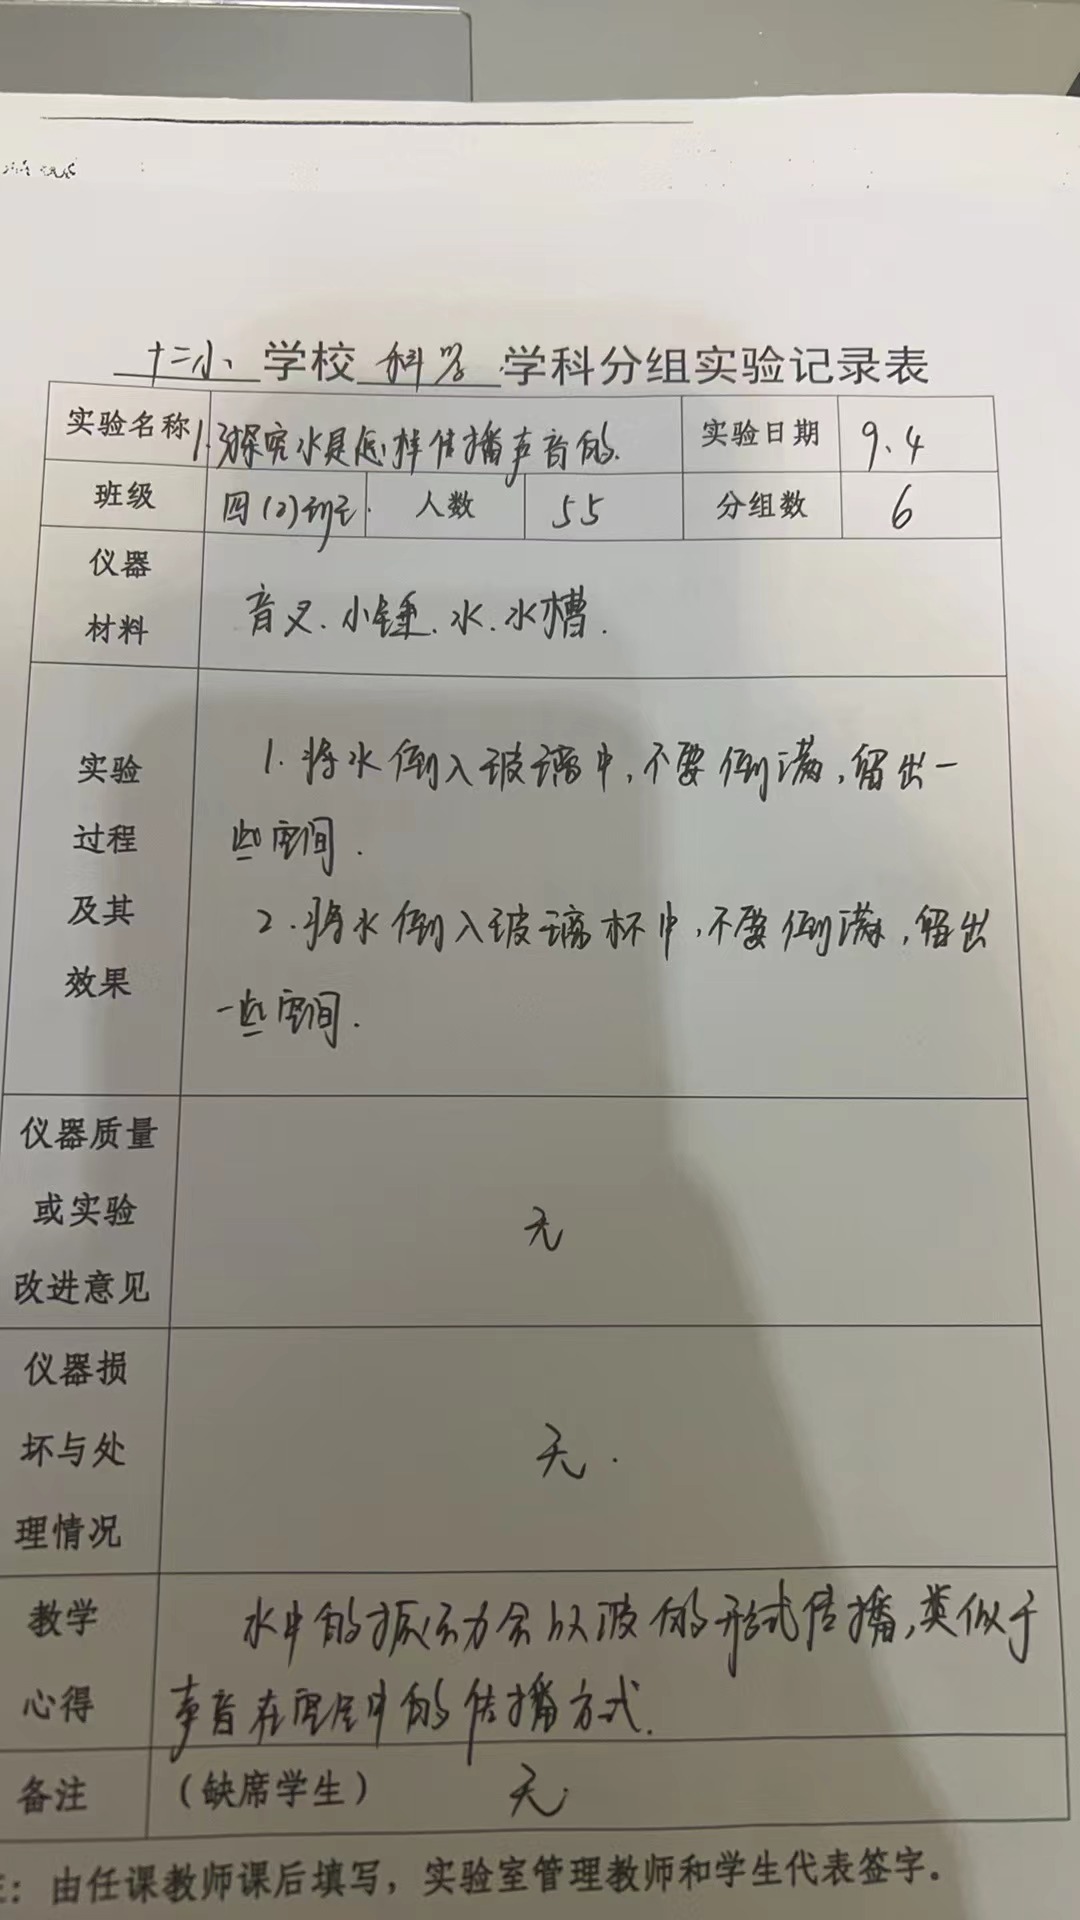 十二小 学校 科学 学科分组实验记录表
实验名称 1.探究水是怎样传播声音的. 实验日期 9.4
班级 四(2)班 人数 55 分组数 6
仪器
材料
音叉.小锤.水.水槽.
实验
过程
及其
效果
1.将水倒入玻璃中,不要倒满,留出一
些空间.
2.将水倒入玻璃杯中,不要倒满,留出
一些空间.
仪器质量
或实验
改进意见
无
仪器损
坏与处
理情况
无.
教学
心得
水中的振动会以波的形式传播,类似于
声音在空气中的传播方式.
备注 (缺席学生) 无
注: 由任课教师课后填写,实验室管理教师和学生代表签字。